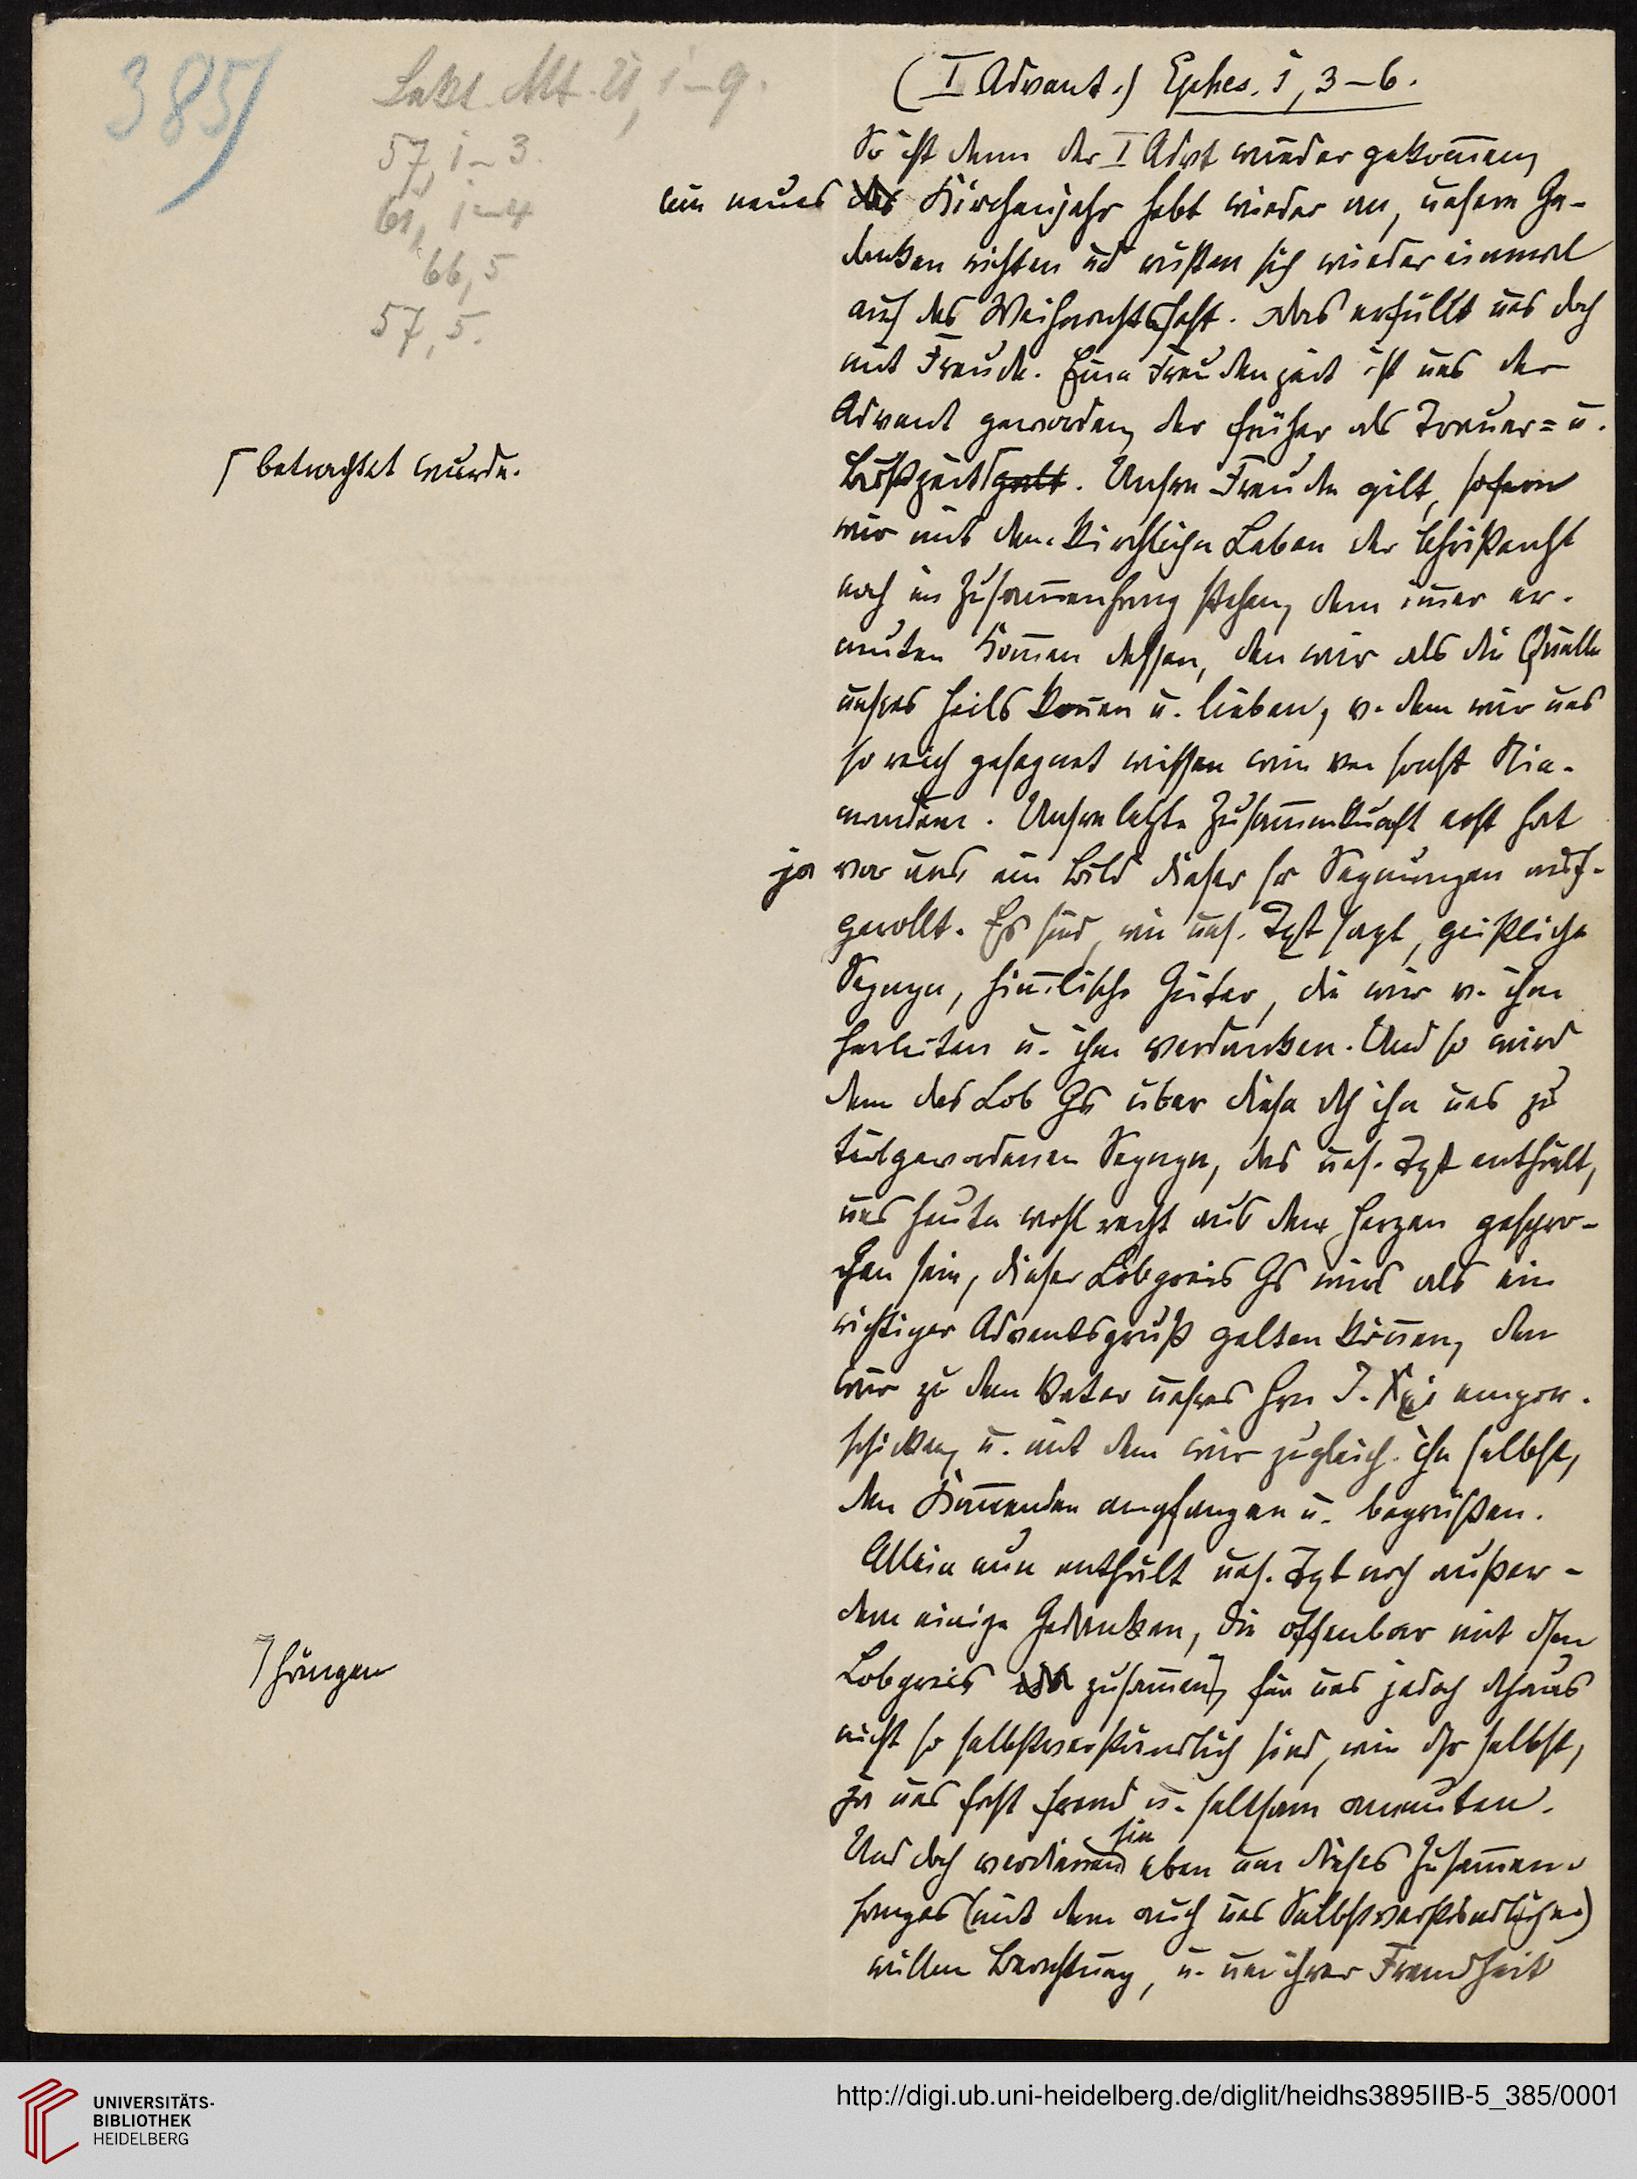 385)
Lekt. Mt. 21, 1–9.
57, 1–3.
61, 1–4
66, 5
57, 5.
(I Advent.) Ephes. 1, 3–6.
So ist denn der I Advt wieder gekom̅en,
ein neues das Kirchenjahr hebt wieder an, unsere Ge-
danken richten ud rüsten sich wieder einmal
auf das Weihnachtsfest. Das erfüllt uns doch
mit Freude. Eine Freudenzeit ist uns der
Advent geworden, der früher als Trauer= u.
Bußzeit ⌈ galt. Unsre Freude gilt, sofern
⌈ betrachtet wurde.
wir mit dem kirchlichen Leben der Christenht
noch im Zusam̅enhang stehen, dem im̅er er-
neuten Kom̅en dessen, den wir als die Quelle
unsres Heils ken̅en u. lieben, v. dem wir uns
so reich gesegnet wissen wie von sonst Nie-
mandem. Unsre letzte Zusam̅enkunft erst hat
ja vor uns ein Bild dieser sr Segnungen auf-
gerollt. Es sind, wie uns. Txt sagt, geistliche
Segngn, him̅lische Güter, die wir v. ihm
herleiten u. ihm verdanken. Und so wird
denn das Lob Gs über diese dch ihn uns zu
teilgewordenen Segngn, das uns. Txt enthält,
uns heute wohl recht aus dem Herzen gespro-
chen sein, dieser Lobpreis Gs wird als ein
richtiger Adventsgruß gelten kön̅en, den
wir zu dem Vater unsres Hrn J. Xsti empor-
schicken, u. mit dem wir zugleich ihn selbst,
den Kom̅enden empfangen u. begrüßen.
Allein nun enthält uns. Txt noch außer-
dem einige Gedanken, die offenbar mit dsem
Lobpreis zusam̅en⌉, für uns jedoch dchaus
⌉ hängen
nicht so selbstverständlich sind, wie dsr selbst,
ja uns fast fremd u. seltsam anmuten.
Und doch verdienen sie eben um dieses Zusam̅en-
hanges (mit dem auch uns Selbstverständlichen)
willen Beachtung, u. um ihrer Fremdheit
UNIVERSITÄTS-
BIBLIOTHEK
HEIDELBERG
http://digi.ub.uni-heidelberg.de/diglit/heidhs3895IIB-5_385/0001